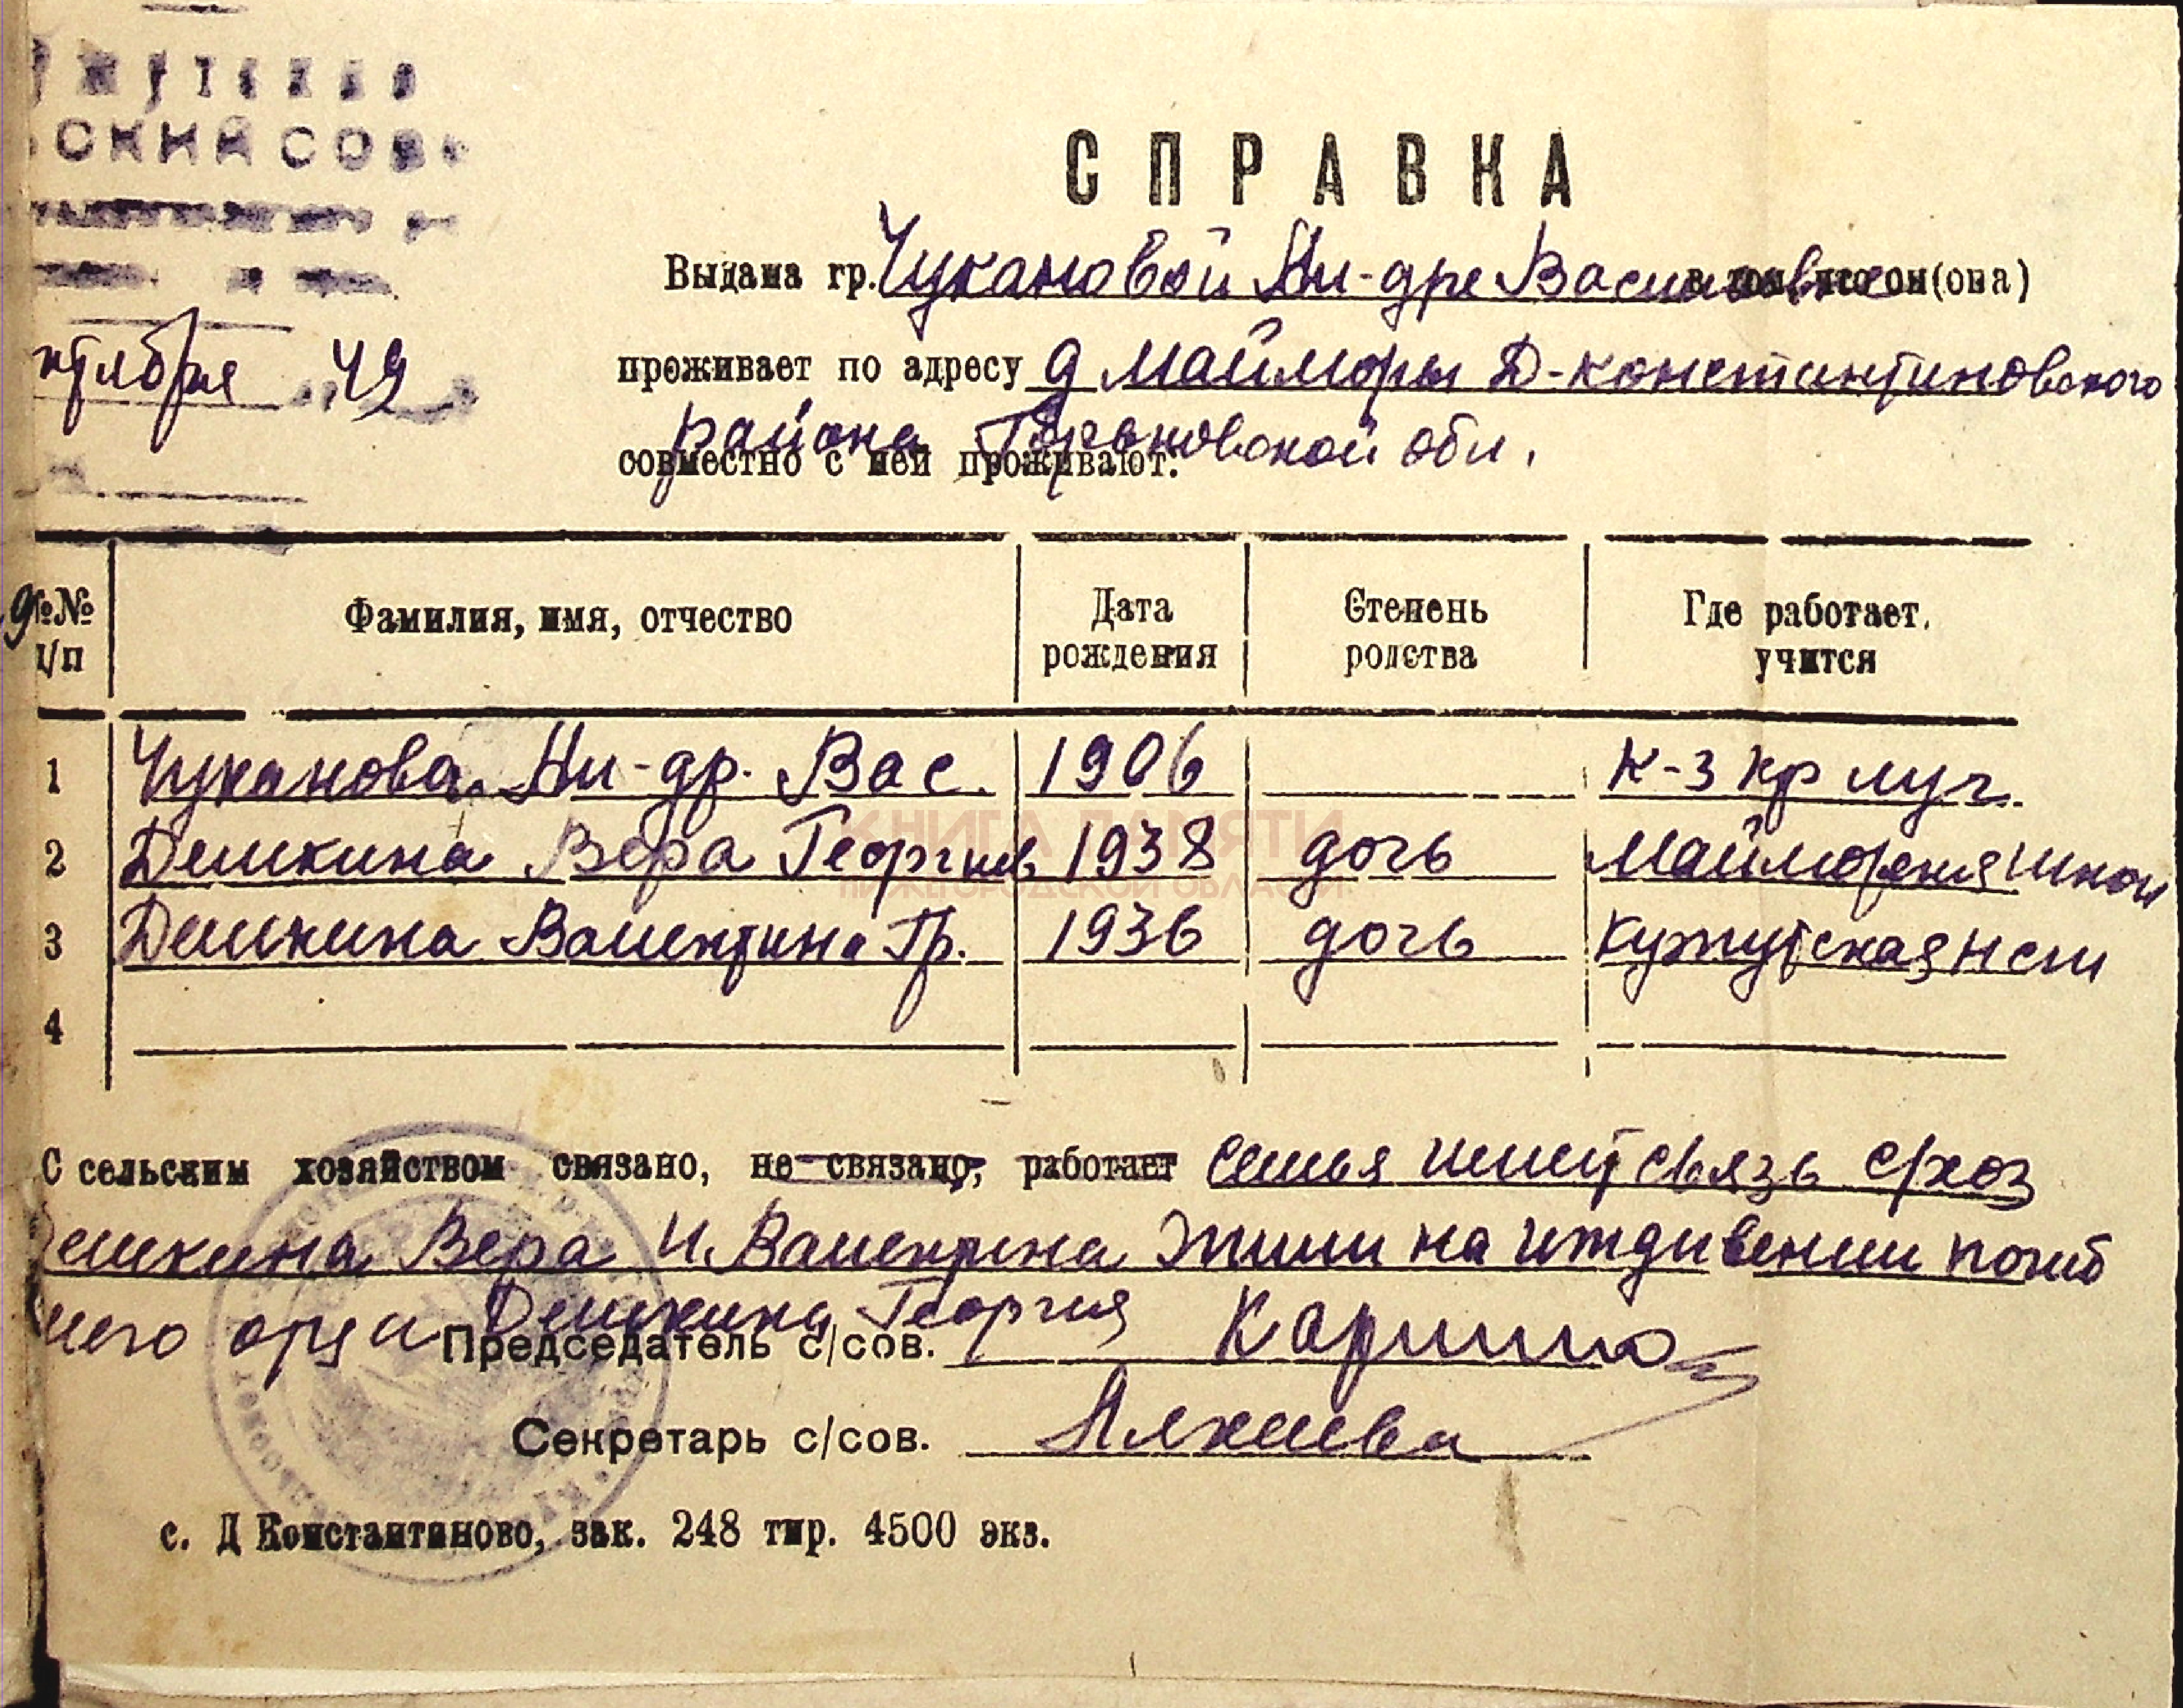 СКИЙ СОВ
СПРАВКА
Выдана гр. Чукановой Ал-дре Васильевне в том, что он(она)
ктября 49
проживает по адресу д Майморы Д-константиновского
района Горьковской обл.
совместно с ней проживают:
№№ п/п Фамилия, имя, отчество Дата рождения Степень родства Где работает, учится
1 Чуканова Ал-др. Вас. 1906 к-з кр луч.
2 Демкина Вера Георгиев 1938 дочь Майморская школ
3 Демкина Валентина Гр. 1936 дочь Кужутская нсш
4
КНИГА ПАМЯТИ
НИЖЕГОРОДСКОЙ ОБЛАСТИ
С сельским хозяйством связано, не связано, работает семья имеет связь с/хоз
емкина Вера и Валентина жили на иждивении погиб
шего отца Демкина Георгия
Председатель с/сов.
Секретарь с/сов.
с. Д Константиново, зак. 248 тир. 4500 экз.